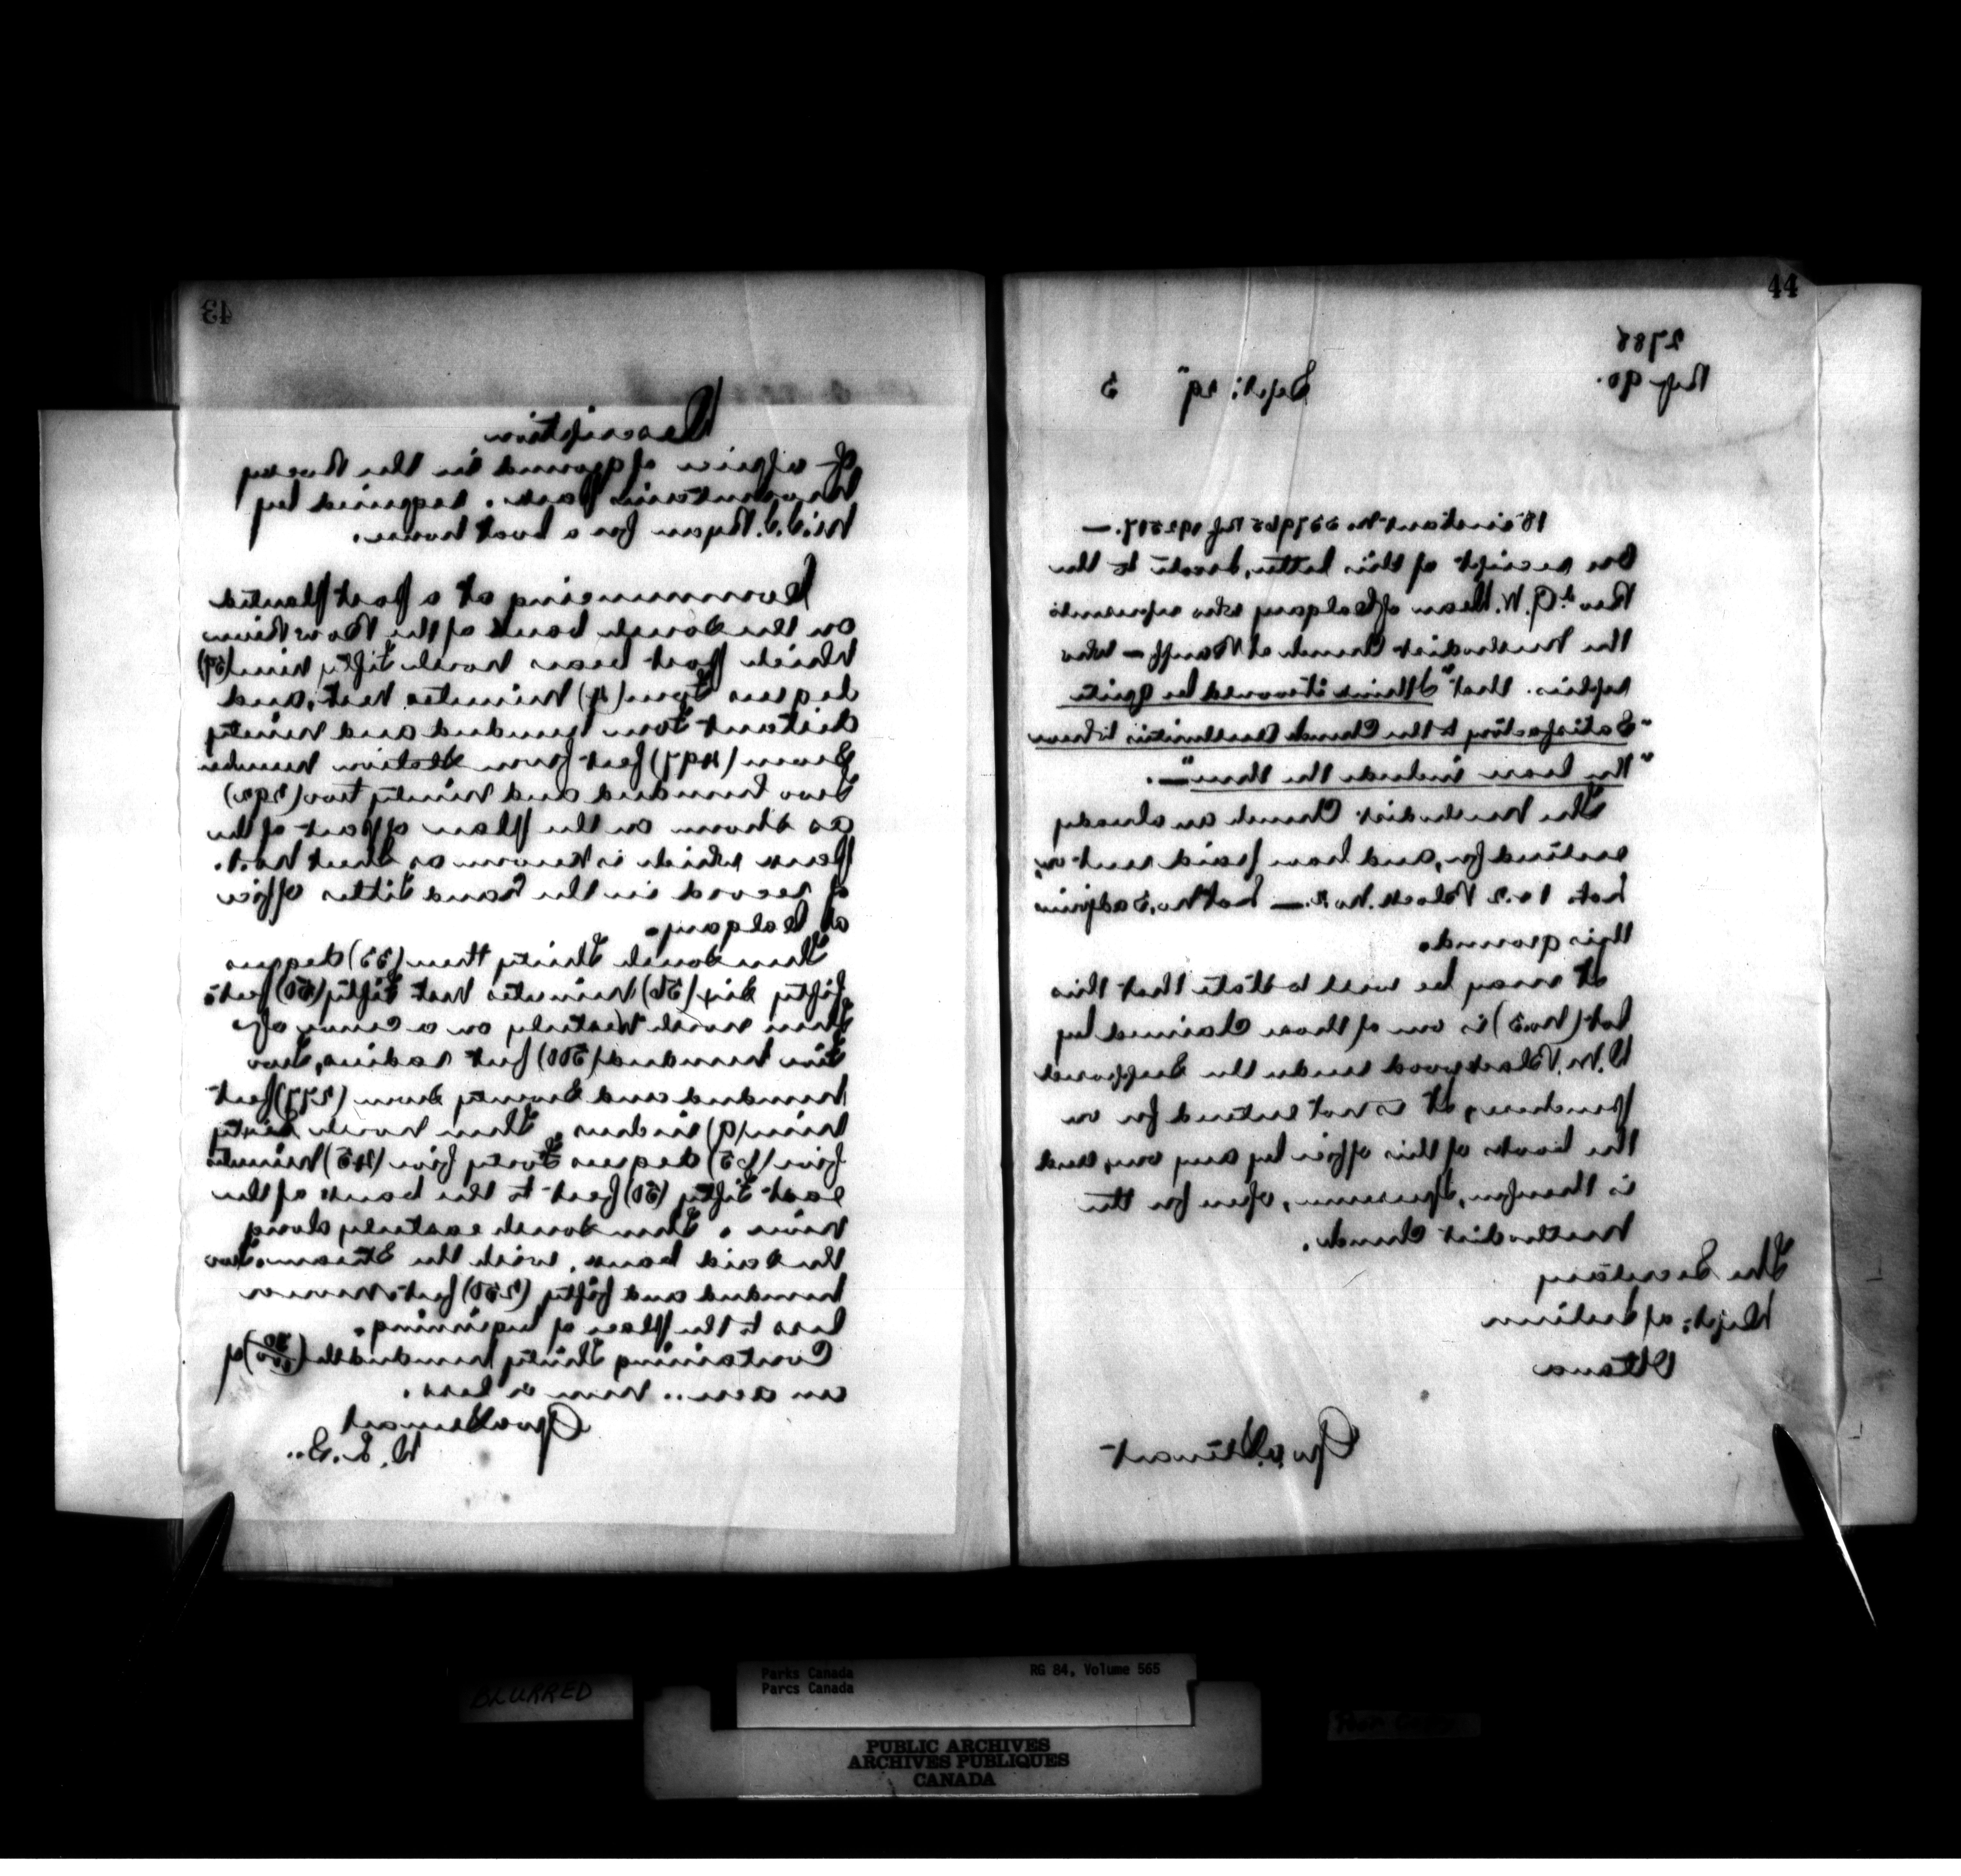 43
Description
of a piece of ground in the Rocky
Mountains Park. required by
for a boat house.
Commencing at a post planted
on the South bank of the Bow River
Which post bears North fifty nine (59)
degrees four (4) Minutes West, and
distant four hundred and ninety
Seven (497) feet from Station number
two hundred and ninety two (292)
as shown on the plan of part of the
Park which is known as Sheet No. 1.
of record in the Land Titles office
at Calgary.
Then South Thirty three (33) degrees
fifty six (56) Minutes West fifty (50) feet
Then North Westerly on a curve of
five hundred (500) feet radius, two
hundred and Seventy Seven (277) feet
Nine (9) inches. Then North Sixty
five (65) degrees forty five (45) Minutes
east fifty (50) feet to the bank of the
River. Then South easterly along
the said bank, with the Stream, two
hundred and fifty (250) feet more or
less to the place of beginning.
Containing Thirty hundredth (30/100) of
an acre... more or less.
Geo A Stewart
D.L.S.
44
2788
Ref 90.
Sept: 19" 3
18 instant No.
On receipt of this letter, I wrote to the
Rev d G. W. Dean of Calgary who represents
the Methodist Church at Banff — who
replies. that "I think it would be quite
"Satisfactory to the Church authorities to have
"the lease include the three" —.
The Methodist Church are already
entered for, and have paid rent on,
Lots 1 & 2 Block No. 2. — Lot No. 3 adjoins
this ground.
It may be well to state that this
Lot (No. 3) is one of those claimed by
D. W. Blackwood under the supposed
purchase, it is not entered for in
the books of this office by any one, and
is therefore, I presume, open for the
Methodist Church.
The Secretary
Dept: of Interior
Ottawa
Geo. A. Stewart
BLURRED
Parks Canada
Parcs Canada
RG 84, Volume 565
Poor Copy
PUBLIC ARCHIVES
ARCHIVES PUBLIQUES
CANADA